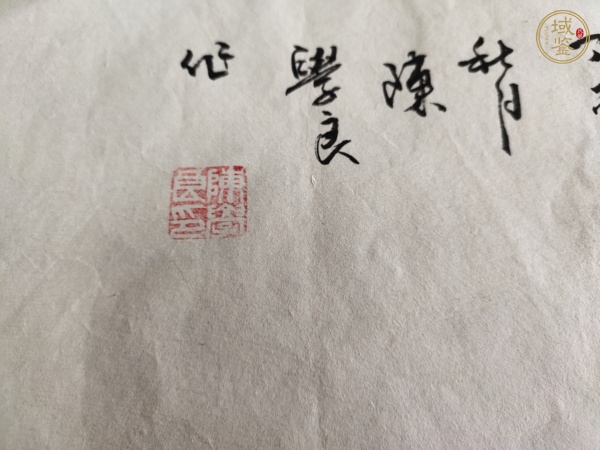 秋月
陳
學良
作
陳學
良印
域鉴